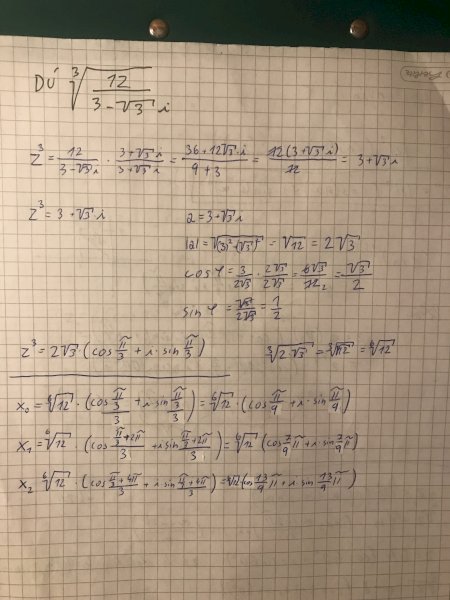 DÚ ∛(12/(3-√3 i))
z³ = 12/(3-√3 i) · (3+√3 i)/(3+√3 i) = (36+12√3·i)/(9+3) = 12(3+√3 i)/12 = 3+√3 i
z³ = 3+√3 i
a = 3+√3 i
|a| = √((3)²+(√3)²) = √12 = 2√3
cos φ = 3/(2√3) · (2√3)/(2√3) = 6√3/12 = √3/2
sin φ = √3/(2√3) = 1/2
z³ = 2√3 (cos π/3 + i·sin π/3)
∛(2·√3) = ∛√12 = ⁶√12
x₀ = ⁶√12 · (cos (π/3)/3 + i·sin (π/3)/3) = ⁶√12 · (cos π/9 + i·sin π/9)
x₁ = ⁶√12 (cos (π/3+2π)/3 + i sin (π/3+2π)/3) = ⁶√12 (cos 7/9 π + i·sin 7/9 π)
x₂ ⁶√12 · (cos (π/3+4π)/3 + i sin (π/3+4π)/3) = ⁶√12 (cos 13/9 π + i sin 13/9 π)